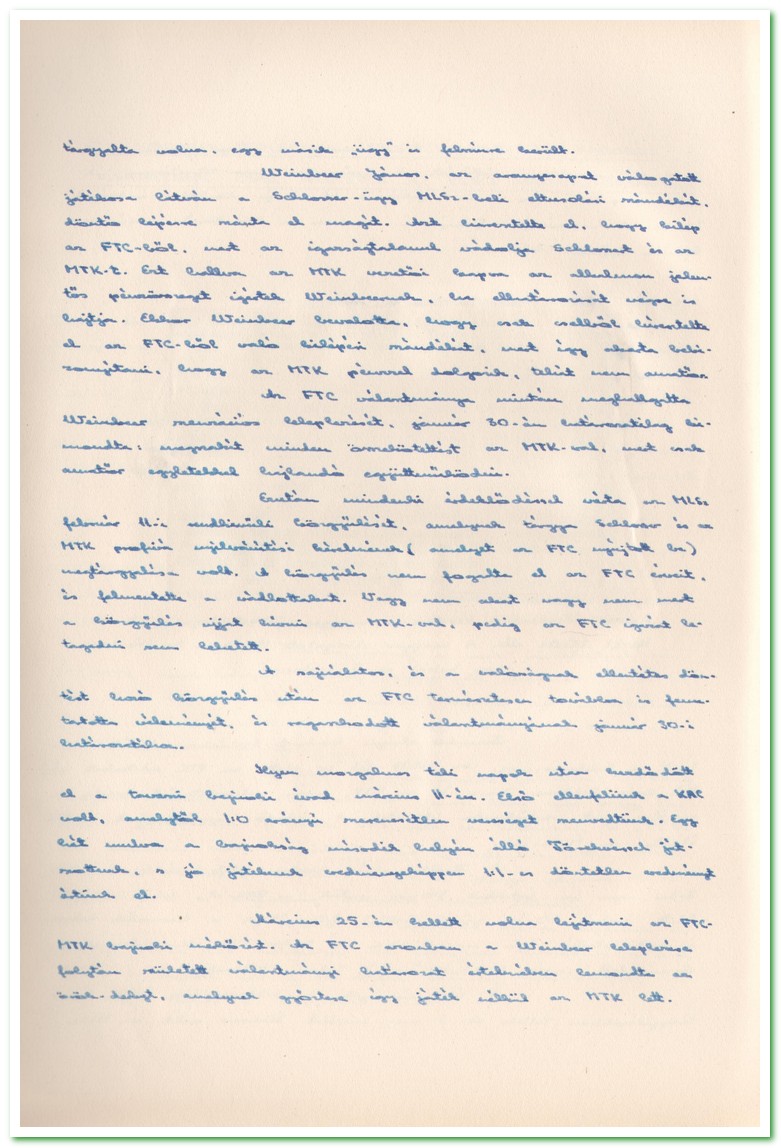 tárgyalta volna, egy másik „ügy” is felszínre került.
Weinber János, az aranycsapat válogatott
játékosa látván a Schlosser-ügy MLSz-beli eltusolási szándékát,
döntő lépésre szánta el magát. Azt híresztelte el, hogy kilép
az FTC-ből, mert az igazságtalanul vádolja Schlossert és az
MTK-t. Ezt hallva az MTK vezetői kapva az alkalmon jelen-
tős pénzösszeget ígértek Weinbernek, ha elhatározását végre is
hajtja. Ekkor Weinber bevallotta, hogy csak cselből híresztelte
el az FTC-ből való kilépési szándékát, mert így akarta bebi-
zonyítani, hogy az MTK pénzzel dolgozik, tehát nem amatőr
Az FTC választmánya miután meghallgatta
Weinber szenzációs leleplezését, január 30-án határozatilag ki-
mondta: megszakít minden összeköttetést az MTK-val, mert csak
amatőr egyletekkel hajlandó együttműködni.
Ezután mindenki érdeklődéssel várta az MLSz
február 11-i rendkívüli közgyűlését, amelynek tárgya Schlosser és az
MTK profivá nyilvánítási kérelmének (amelyet az FTC nyújtott be)
megtárgyalása volt. A közgyűlés nem fogadta el az FTC érveit,
és felmentette a vádlottakat. Vagy nem akart vagy nem mert
a közgyűlés ujjat húzni az MTK-val, pedig az FTC igazát le-
tagadni sem lehetett.
A sajnálatos, és a valóságnak ellentétes dön-
tést hozó közgyűlés után az FTC természetesen továbbra is fenn-
tartotta véleményét, és ragaszkodott választmányának január 30-i
határozatához.
Ilyen mozgalmas téli napok után kezdődött
el a tavaszi bajnoki évad március 11-én. Első ellenfelünk a KAC
volt, amelytől 1:0 arányú szerencsétlen vereséget szenvedtünk. Egy
hét mulva a bajnokság második helyén álló Törekvéssel ját-
szottunk, s jó játékunk eredményeképpen 1:1-es döntetlen eredményt
értünk el.
Március 25-én kellett volna lejátszani az FTC-
MTK bajnoki mérkőzést. Az FTC azonban a Weinber leleplezése
folytán született választmányi határozat értelmében lemondta az
örök-derbyt, amelynek győztese így játék nélkül az MTK lett.